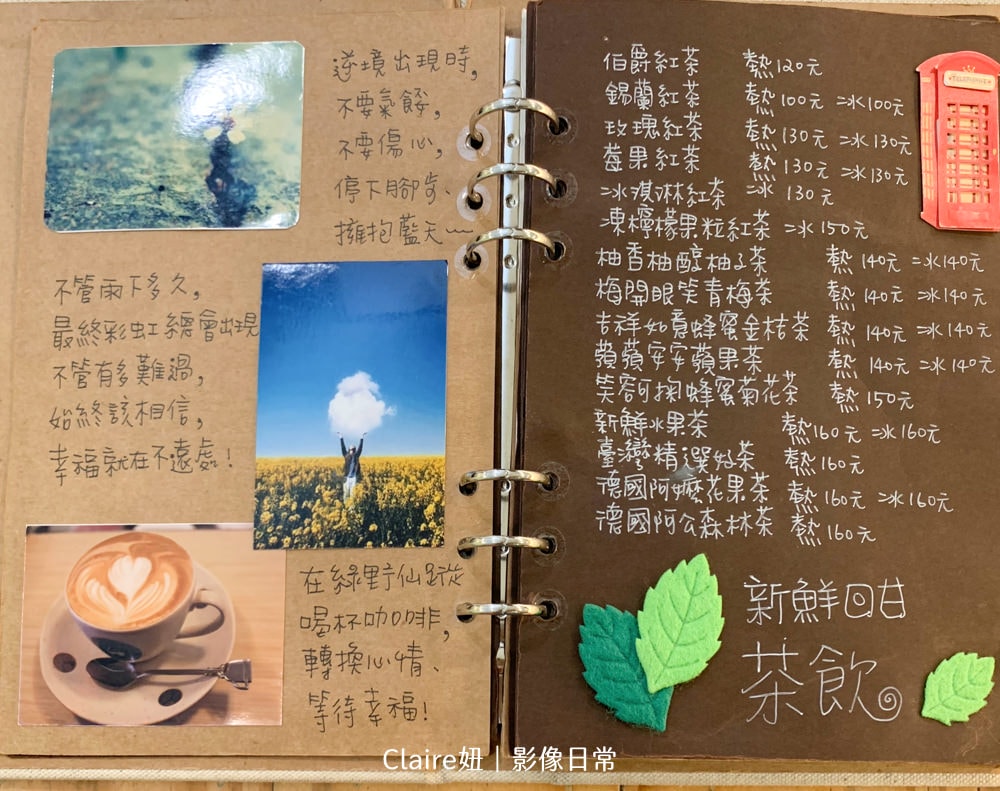 逆境出現時,
不要氣餒,
不要傷心,
停下腳步、
擁抱藍天~~
不管雨下多久,
最終彩虹總會出現
不管有多難過,
始終該相信,
幸福就在不遠處!
在綠野仙蹤
喝杯咖啡,
轉換心情、
等待幸福!
伯爵紅茶 熱120元
錫蘭紅茶 熱100元 冰100元
玫瑰紅茶 熱130元 冰130元
莓果紅茶 熱130元 冰130元
冰淇淋紅茶 冰130元
凍檸檬果粒紅茶 冰150元
柚香柚醇柚子茶 熱140元 冰140元
梅開眼笑青梅茶 熱140元 冰140元
吉祥如意蜂蜜金桔茶 熱140元 冰140元
蘋蘋安安蘋果茶 熱140元 冰140元
笑容可掬蜂蜜菊花茶 熱150元
新鮮水果茶 熱160元 冰160元
臺灣精選好茶 熱160元
德國阿嬤花果茶 熱160元 冰160元
德國阿公森林茶 熱160元
新鮮回甘
茶飲
TELEPHONE
Claire妞|影像日常